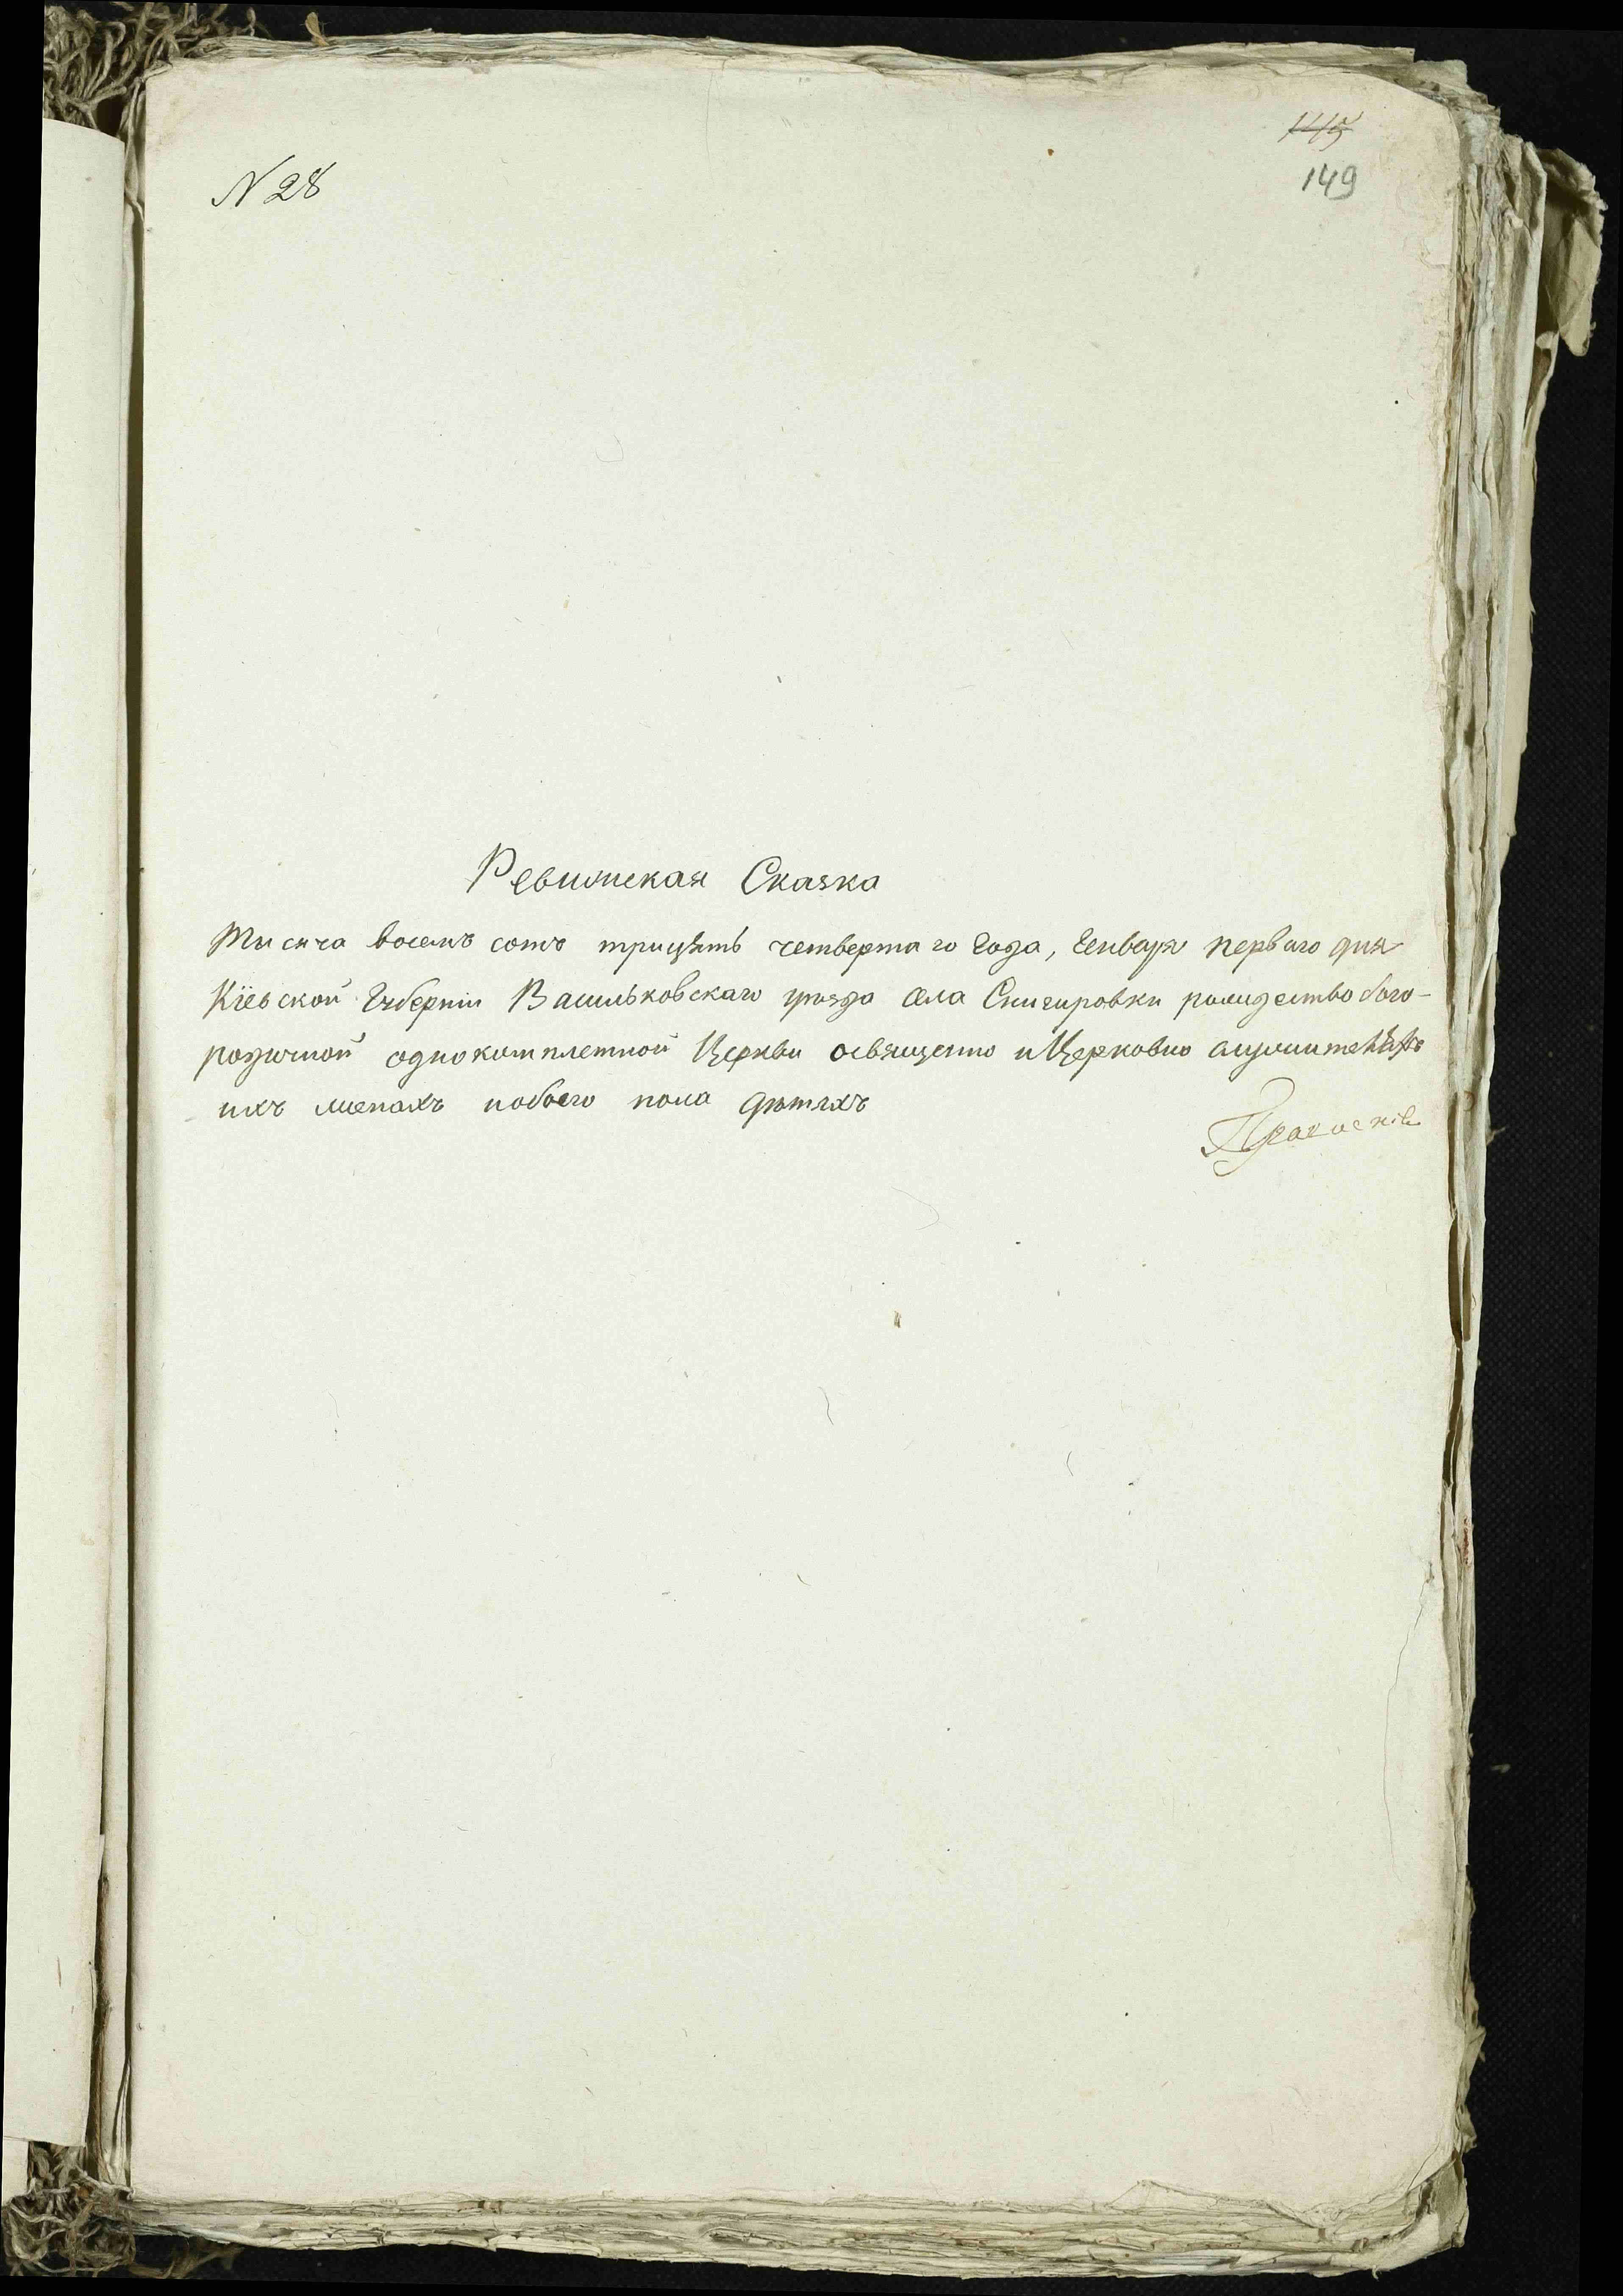 145
149
N 28
Ревизская Сказка
Тисяча восемъ сотъ трицять четвертаго Года, Генваря первого дня
Кіевской Губерніи Васильковскаго уѣзда села Снигировки рождество бого-
родичной однокомплетной Церкви освященно и Церковно служителяхъ
ихъ женахъ и обоего пола дѣтяхъ